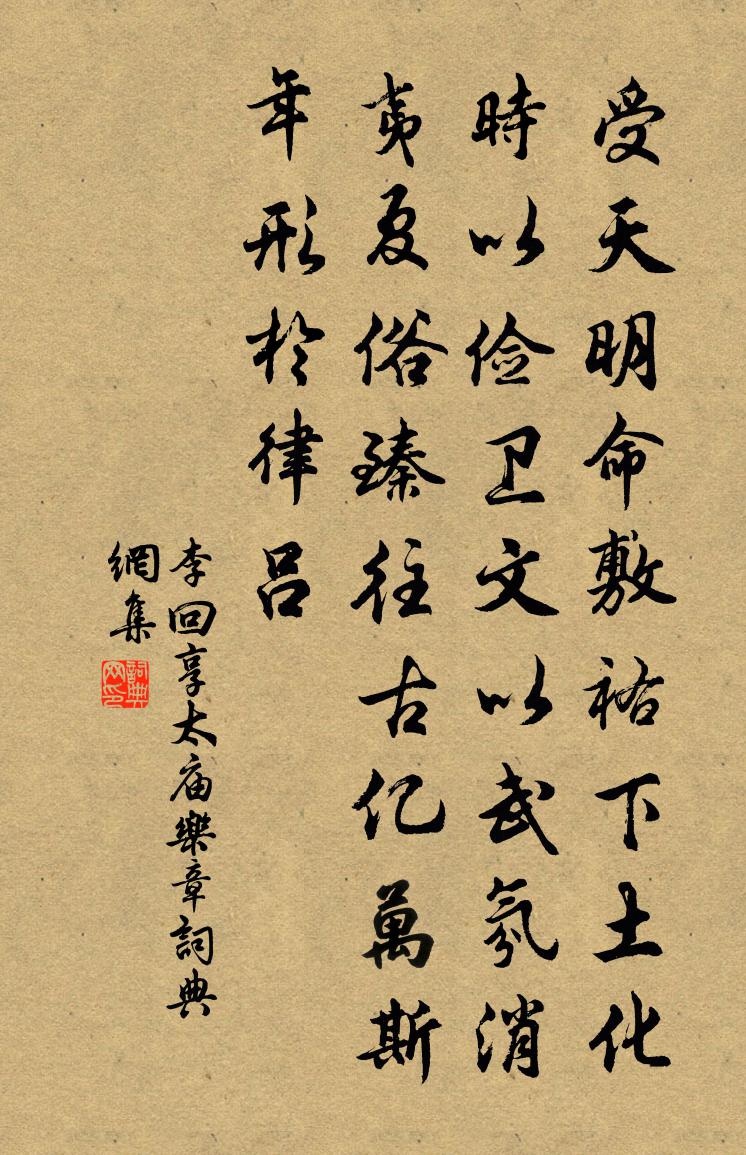 受天明命敷祐下土化
時以俭卫文以武氛消
夷夏俗臻往古亿萬斯
年形於律呂
李回享太庙樂章詞典
網集
詞典网印